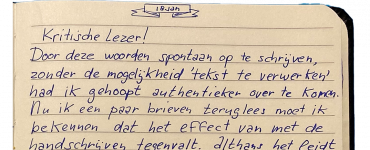 Kritische Lezer!
Door deze woorden spontaan op te schrijven,
zonder de mogelijkheid 'tekst te verwerken'
had ik gehoopt authentieker over te komen.
Nu ik een paar brieven teruglees moet ik
bekennen dat het effect van met de
handschrijven tegenvalt, althans het leidt